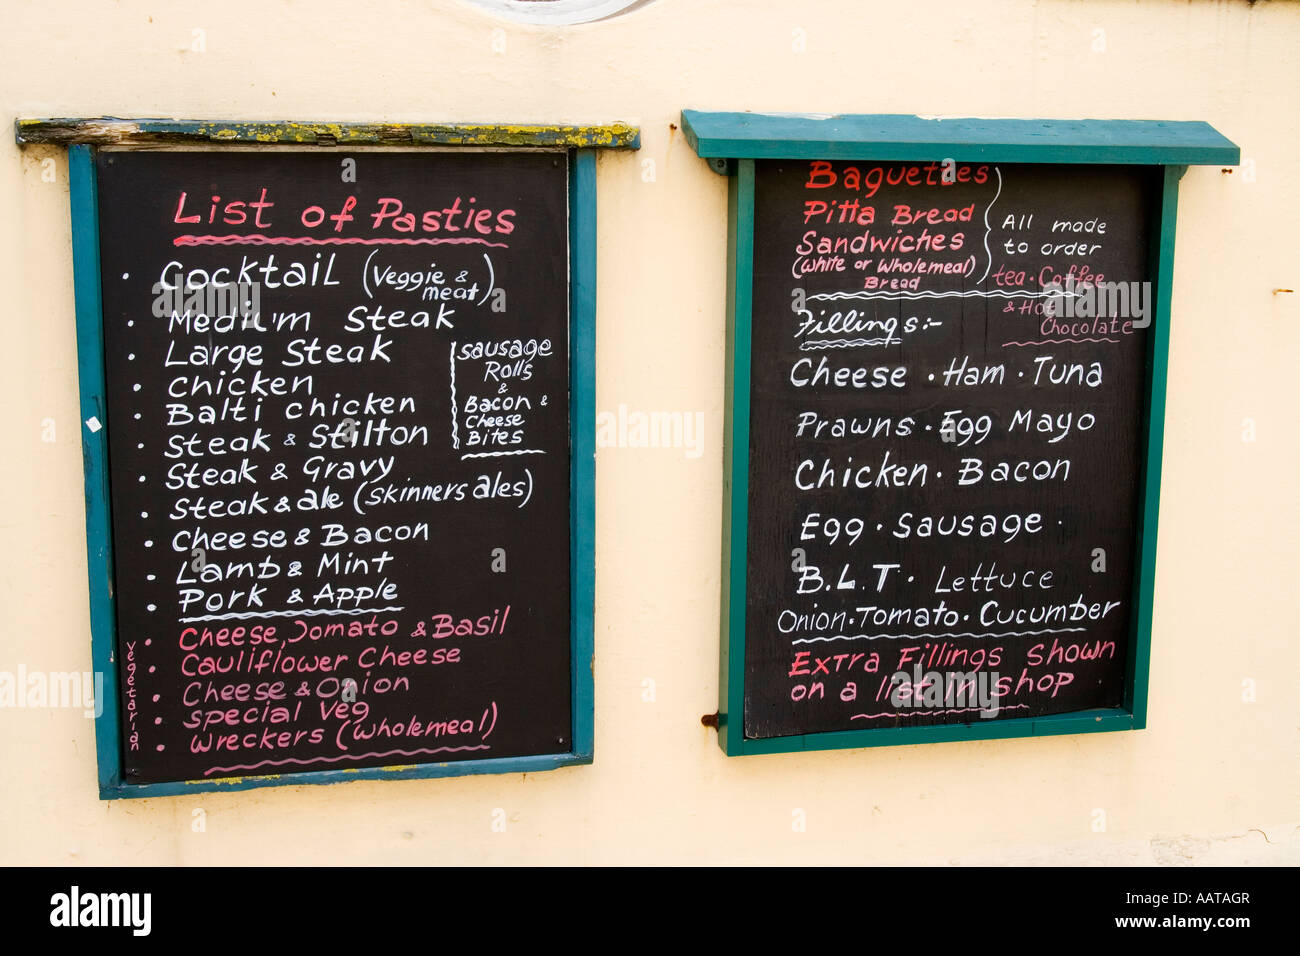 List of Pasties
• Cocktail (Veggie & meat)
• Medium Steak
• Large Steak
• Chicken
• Balti Chicken
• Steak & Stilton
• Steak & Gravy
• Steak & ale (Skinners ales)
• Cheese & Bacon
• Lamb & Mint
• Pork & Apple
Sausage
Rolls
&
Bacon &
Cheese
Bites
Vegetarian
• Cheese, Tomato & Basil
• Cauliflower Cheese
• Cheese & Onion
• Special Veg
• Wreckers (Wholemeal)
Baguettes
Pitta Bread
Sandwiches
(White or Wholemeal)
Bread
All made
to order
tea • Coffee
& Hot
Chocolate
Fillings:-
Cheese • Ham • Tuna
Prawns • Egg Mayo
Chicken • Bacon
Egg • Sausage •
B.L.T • Lettuce
Onion • Tomato • Cucumber
Extra Fillings shown
on a list in shop
alamy
alamy stock photo
Image ID: AATAGR
www.alamy.com